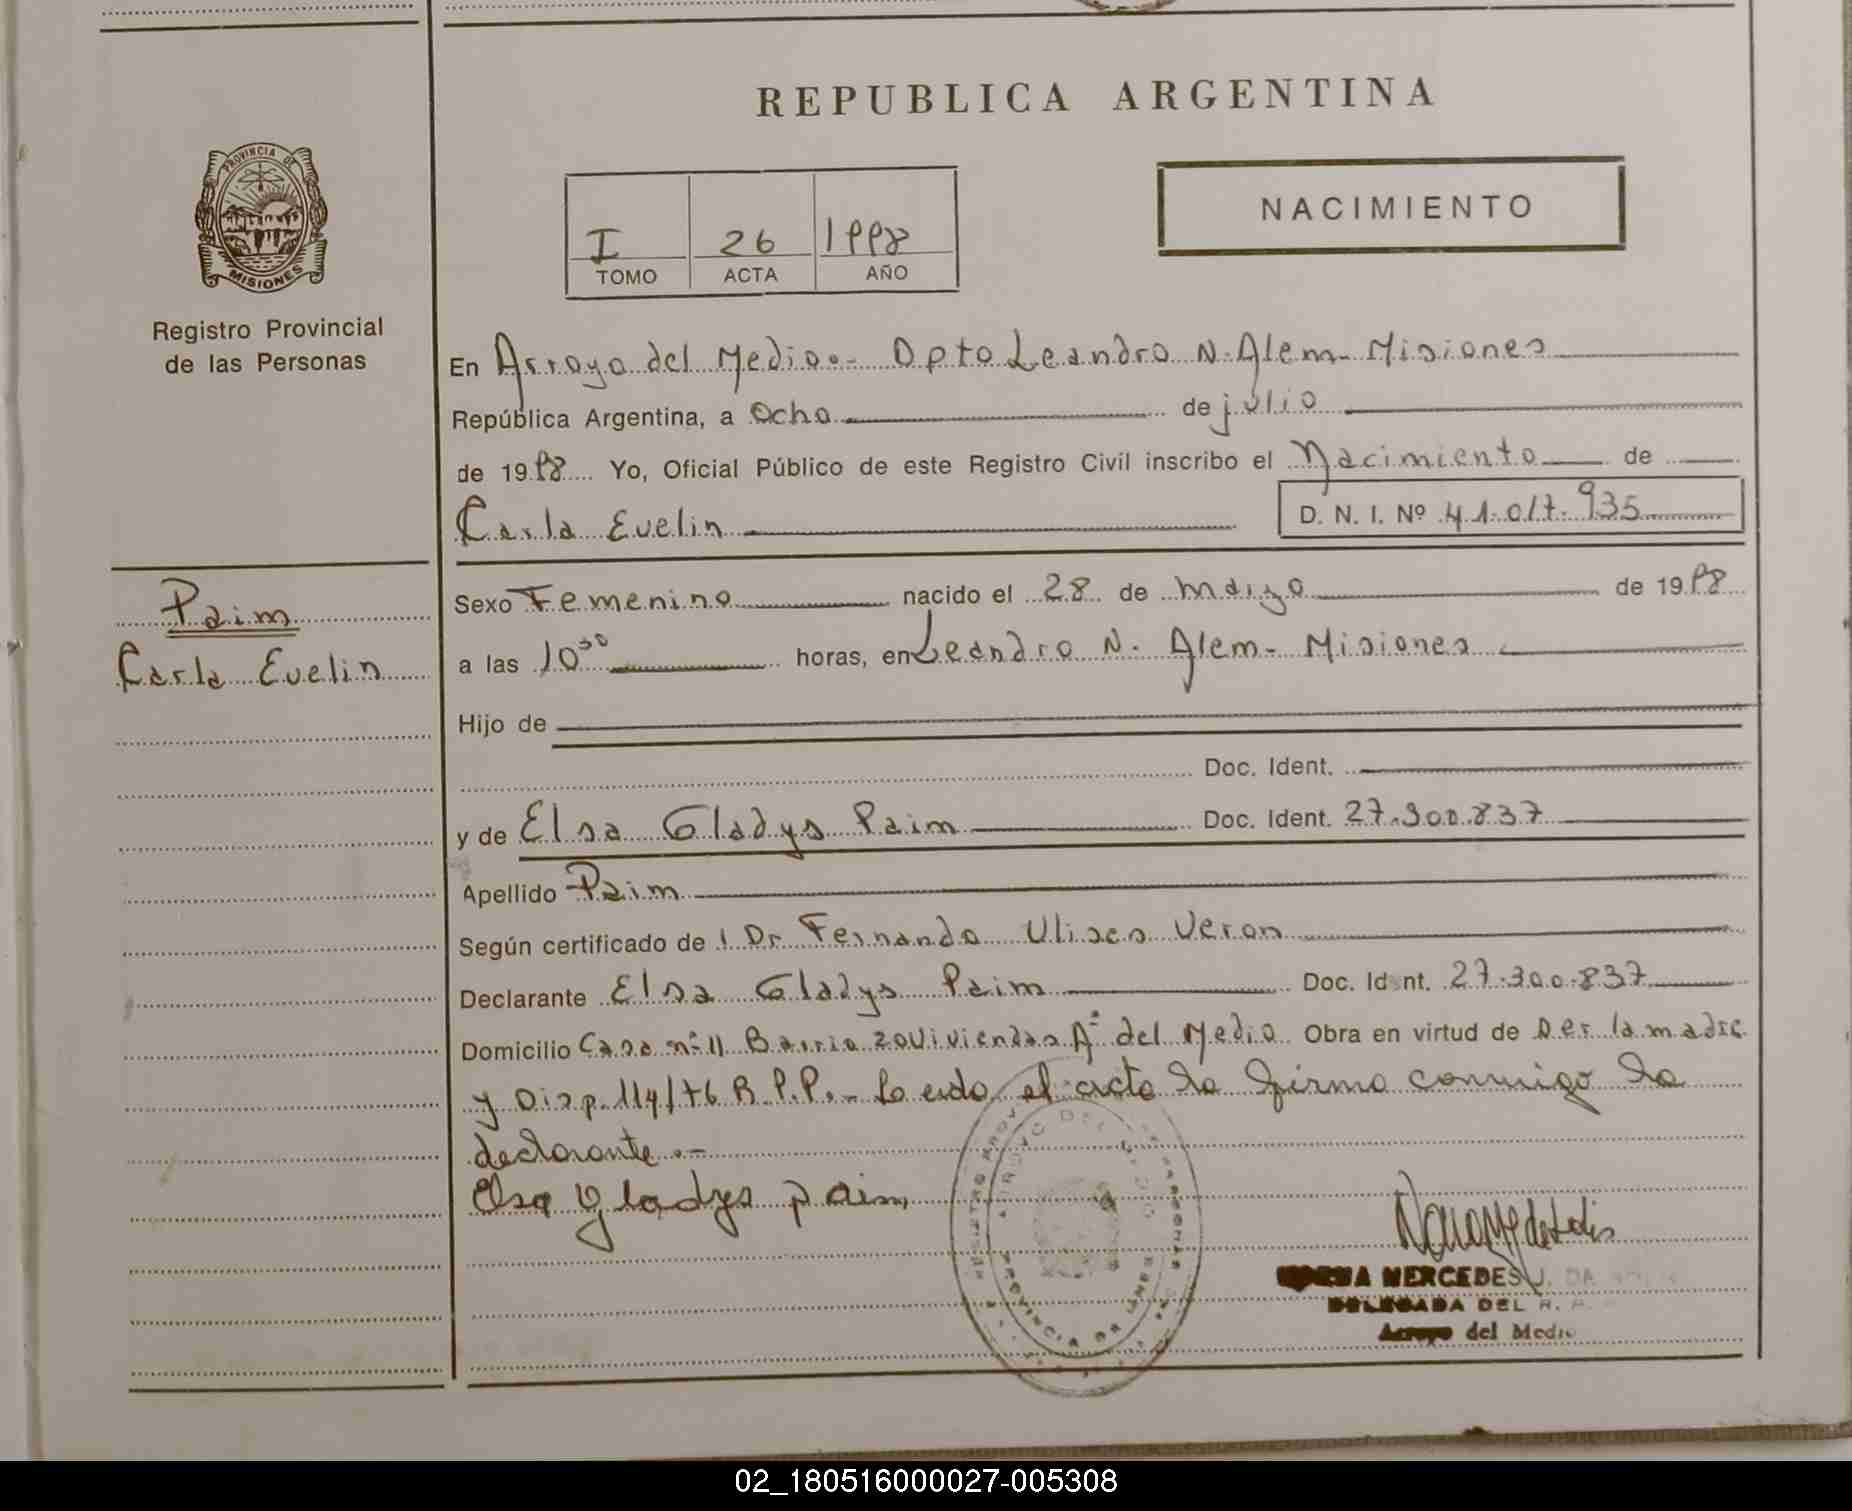 REPUBLICA ARGENTINA
PROVINCIA DE
MISIONES
Registro Provincial
de las Personas
I 26 1998
TOMO ACTA AÑO
NACIMIENTO
En Arroyo del Medio.- Dpto Leandro N. Alem - Misiones
República Argentina, a ocho de julio
de 1998 Yo, Oficial Público de este Registro Civil inscribo el Nacimiento de
Carla Evelin D. N. I. Nº 41.017.935
Paim
Carla Evelin
Sexo Femenino nacido el 28 de marzo de 1998
a las 10 30 horas, en Leandro N. Alem - Misiones
Hijo de
Doc. Ident.
y de Elsa Gladys Paim Doc. Ident. 27.300.837
Apellido Paim
Según certificado de Dr Fernando Ulises Veron
Declarante Elsa Gladys Paim Doc. Id nt. 27.300.837
Domicilio Casa nº 11 Barrio 20 Viviendas Aº del Medio Obra en virtud de Der la madre
y Disp. 114/76 R.P.P.- Leido el acto la firma conmigo la
declarante.-
Elsa Gladys paim
MERCEDES J. DA
DELEGADA DEL R.
Arroyo del Medio
02_180516000027-005308